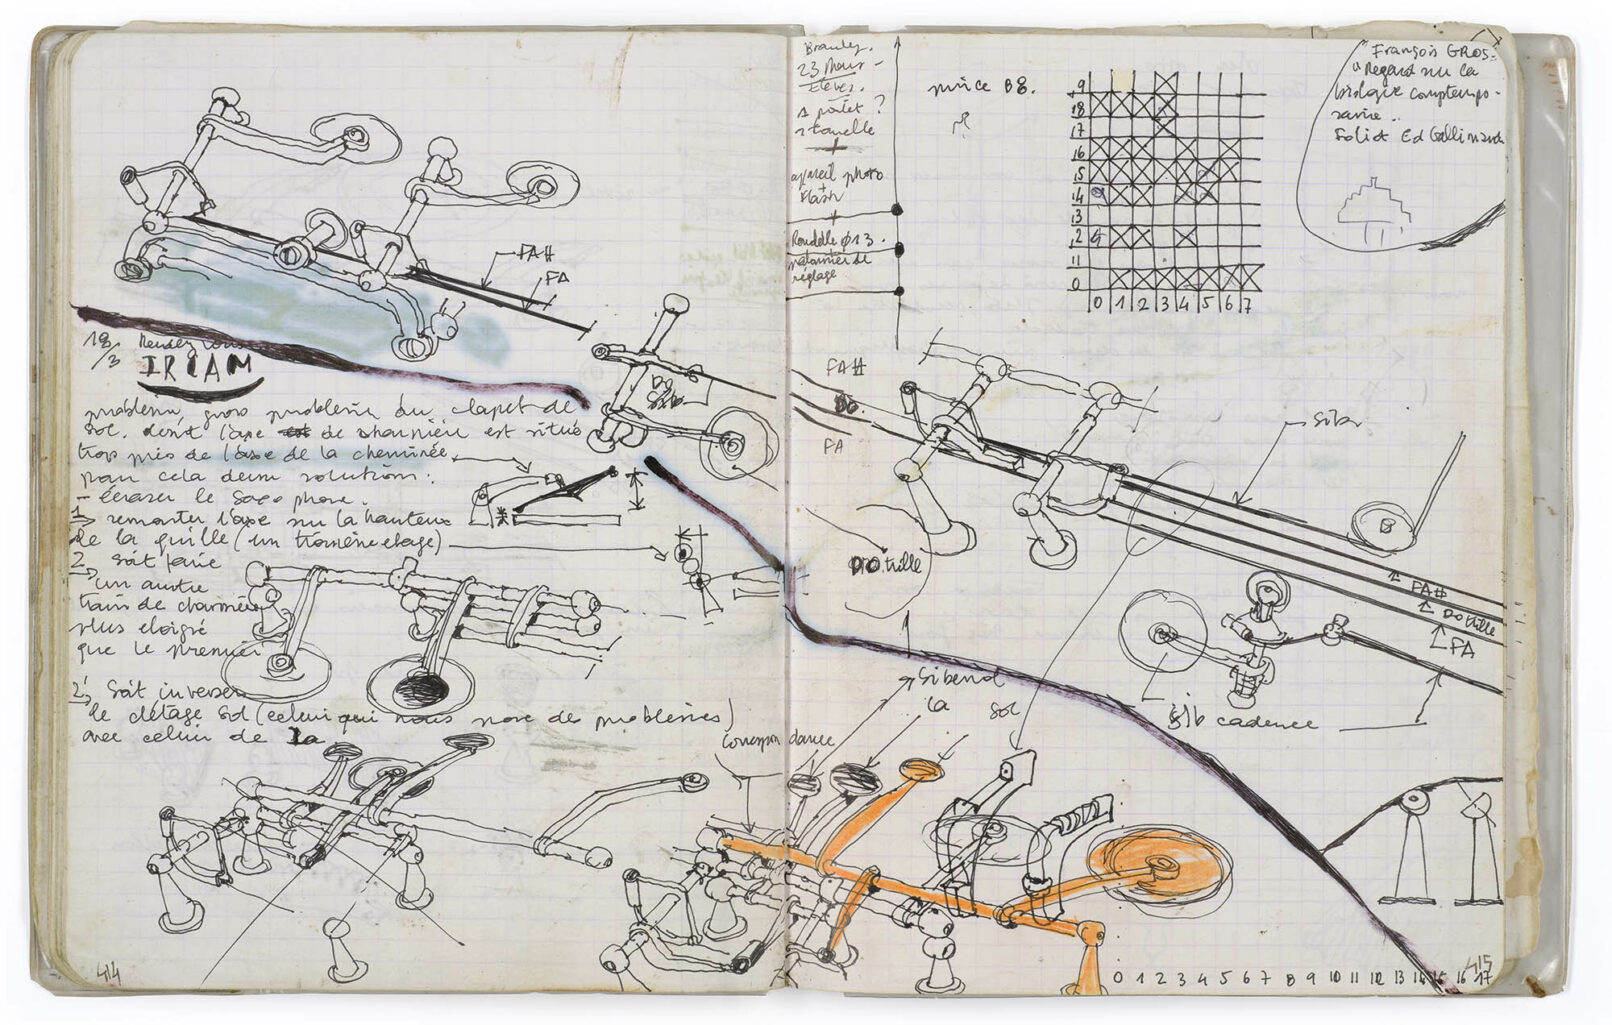 FA#
FA
18/3 Rendez vous
IRCAM
problème, gros problème du clapet de
sol. dont l'axe de charnière est situé
trop près de l'axe de la cheminée
pour cela deux solutions:
- écraser le saxophone.
1 remonter l'axe sur la hauteur
de la quille (un troisième etage)
2 Soit faire
un autre
train de charnière
plus eloigné
que le premier
2' Soit inverser
le clétage sol (celui qui nous pose des problèmes)
avec celui de La
Do
Sib
414
23 Mars -
Elèves.
appareil photo
+
Flash
+
Rondelle ø 13.
réglage
pince B8.
9
18
17
16
15
14
13
12
11
0
0 1 2 3 4 5 6 7
François GROS.
"Regard sur la
biologie comptempo-
raine.
Soliot Ed Gallimard
FA#
Do.
FA
Sib
B
Do trille
FA#
Do trille
FA
Sib cadence
Si bemol
La
Sol
Correspondance
0 1 2 3 4 5 6 7 8 9 10 11 12 13 14 15 16 17
415